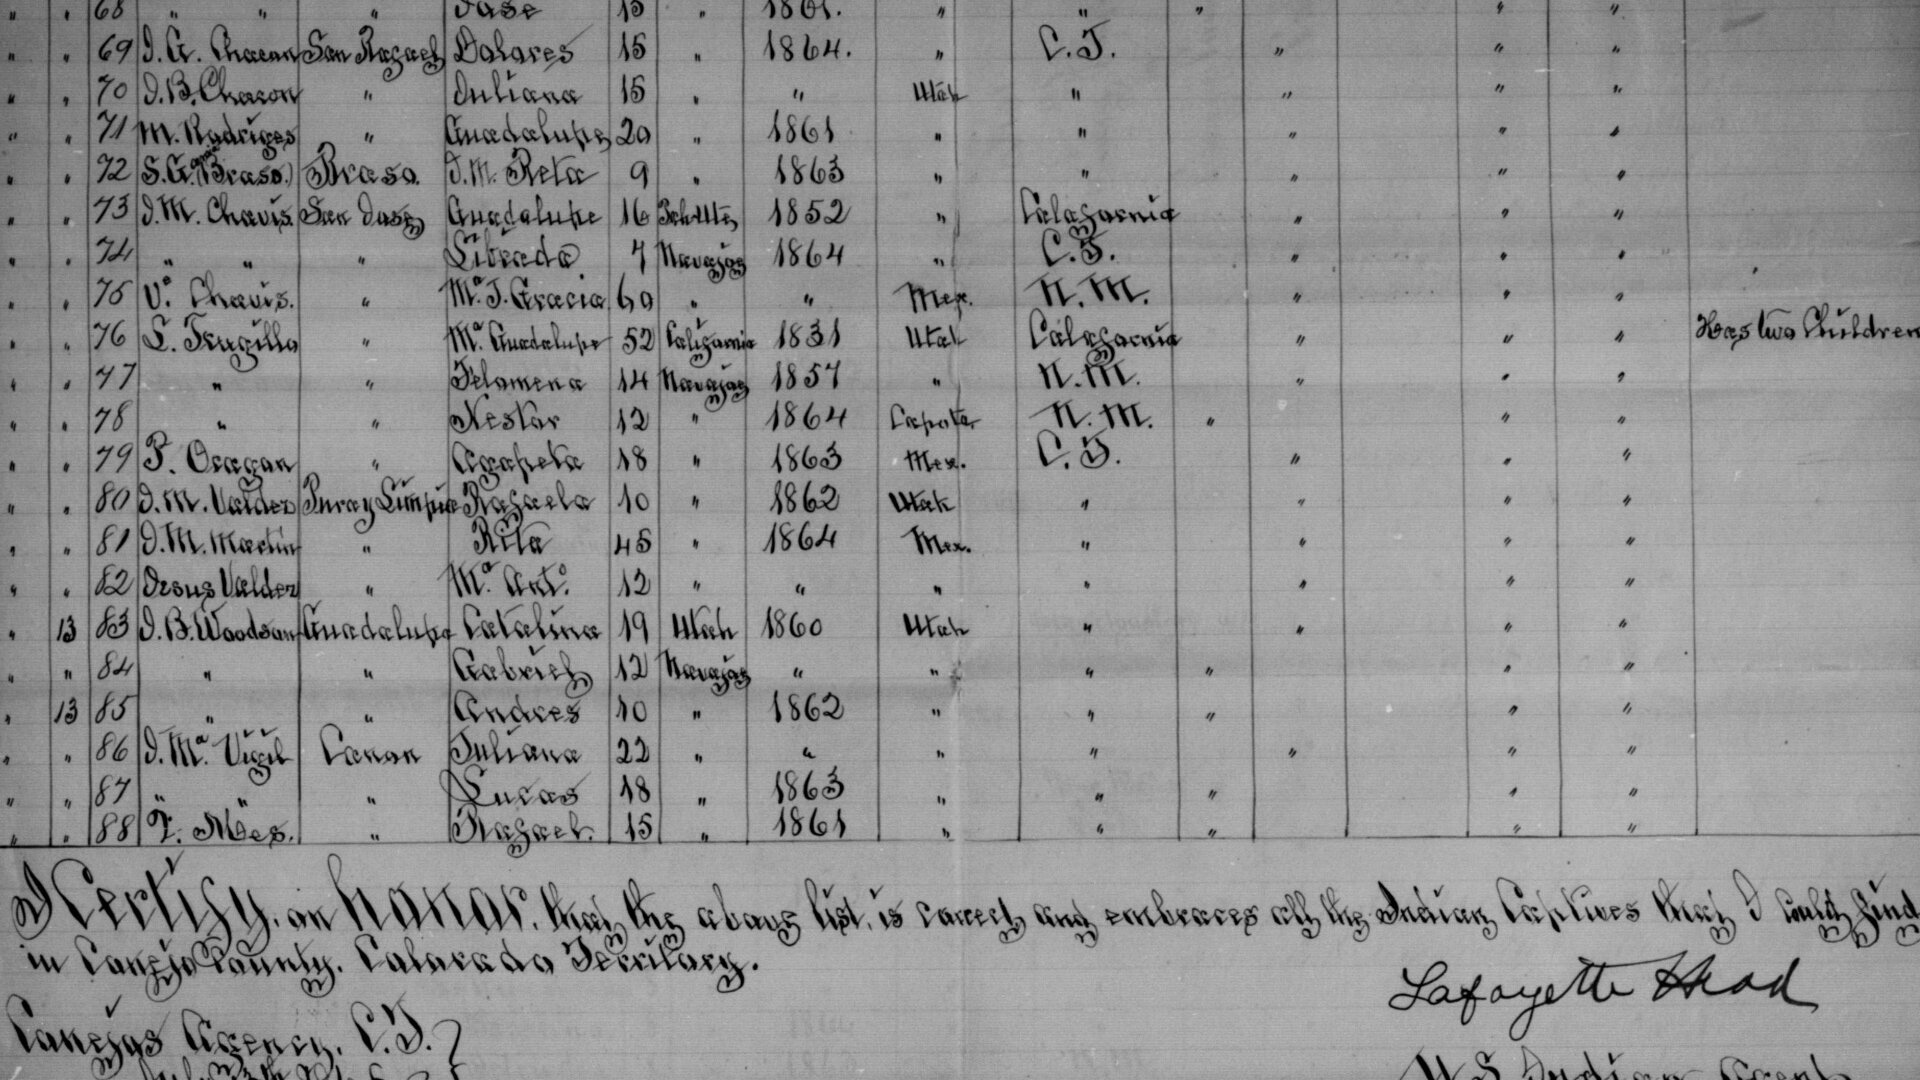 " " 68 " " " Jose 15 " 1861. " " " " "
" " 69 J. A. Chacon San Rafael Dolores 15 " 1864. " C. T. " " "
" " 70 J. B. Chacon " Juliana 15 " " Utah " " " "
" " 71 M. Rodriges " Guadalupe 20 " 1861 " " " " "
" " 72 S. Garcia (Braso.) Braso. J. M. Reta 9 " 1863 " " " " "
" " 73 J. M. Chavis. San Jose Guadalupe 16 Pah Utes 1852 " Calafornia " " "
" " 74 " " " Librada 7 Navajoe 1864 " C. T. " " "
" " 75 Va. Chavis. " Ma. J. Gracia 60 " " Mex. N. M. " " "
" " 76 L. Trugillo " Ma. Guadalupe 52 California 1831 Utah Calafornia " " " Has two Children
" " 77 " " Felomena 14 Navajoe 1857 " N. M. " " "
" " 78 " " Nestor 12 " 1864 Capota N. M. " " "
" " 79 P. Oragon " Agapeta 18 " 1863 Mex. C. T. " " "
" " 80 J. M. Valdez Rafaela 10 " 1862 Utah " " " "
" " 81 J. M. Martin " Rita 45 " 1864 Mex. " " " "
" " 82 Jesus Valdez " Ma. Anto. 12 " " " " " " "
" 13 83 J. B. Woodson Guadalupe Catalina 19 Utah 1860 Utah " " " "
" " 84 " " Gabriel 12 Navajoe " " " " " "
" 13 85 " " Andres 10 " 1862 " " " " "
" " 86 J. Ma. Vigil Canon Juliana 22 " " " " " " "
" " 87 " " " Lucas 18 " 1863 " " " " "
" " 88 Mes. " Rafael. 15 " 1861 " " " " "
I Certify, on honor, that the above list, is correct and embraces all the Indian Captives that I could find
in Conejos County, Colorado Territory.
Lafayette Head
Conejos Agency, C. T.
U S Indian Agent